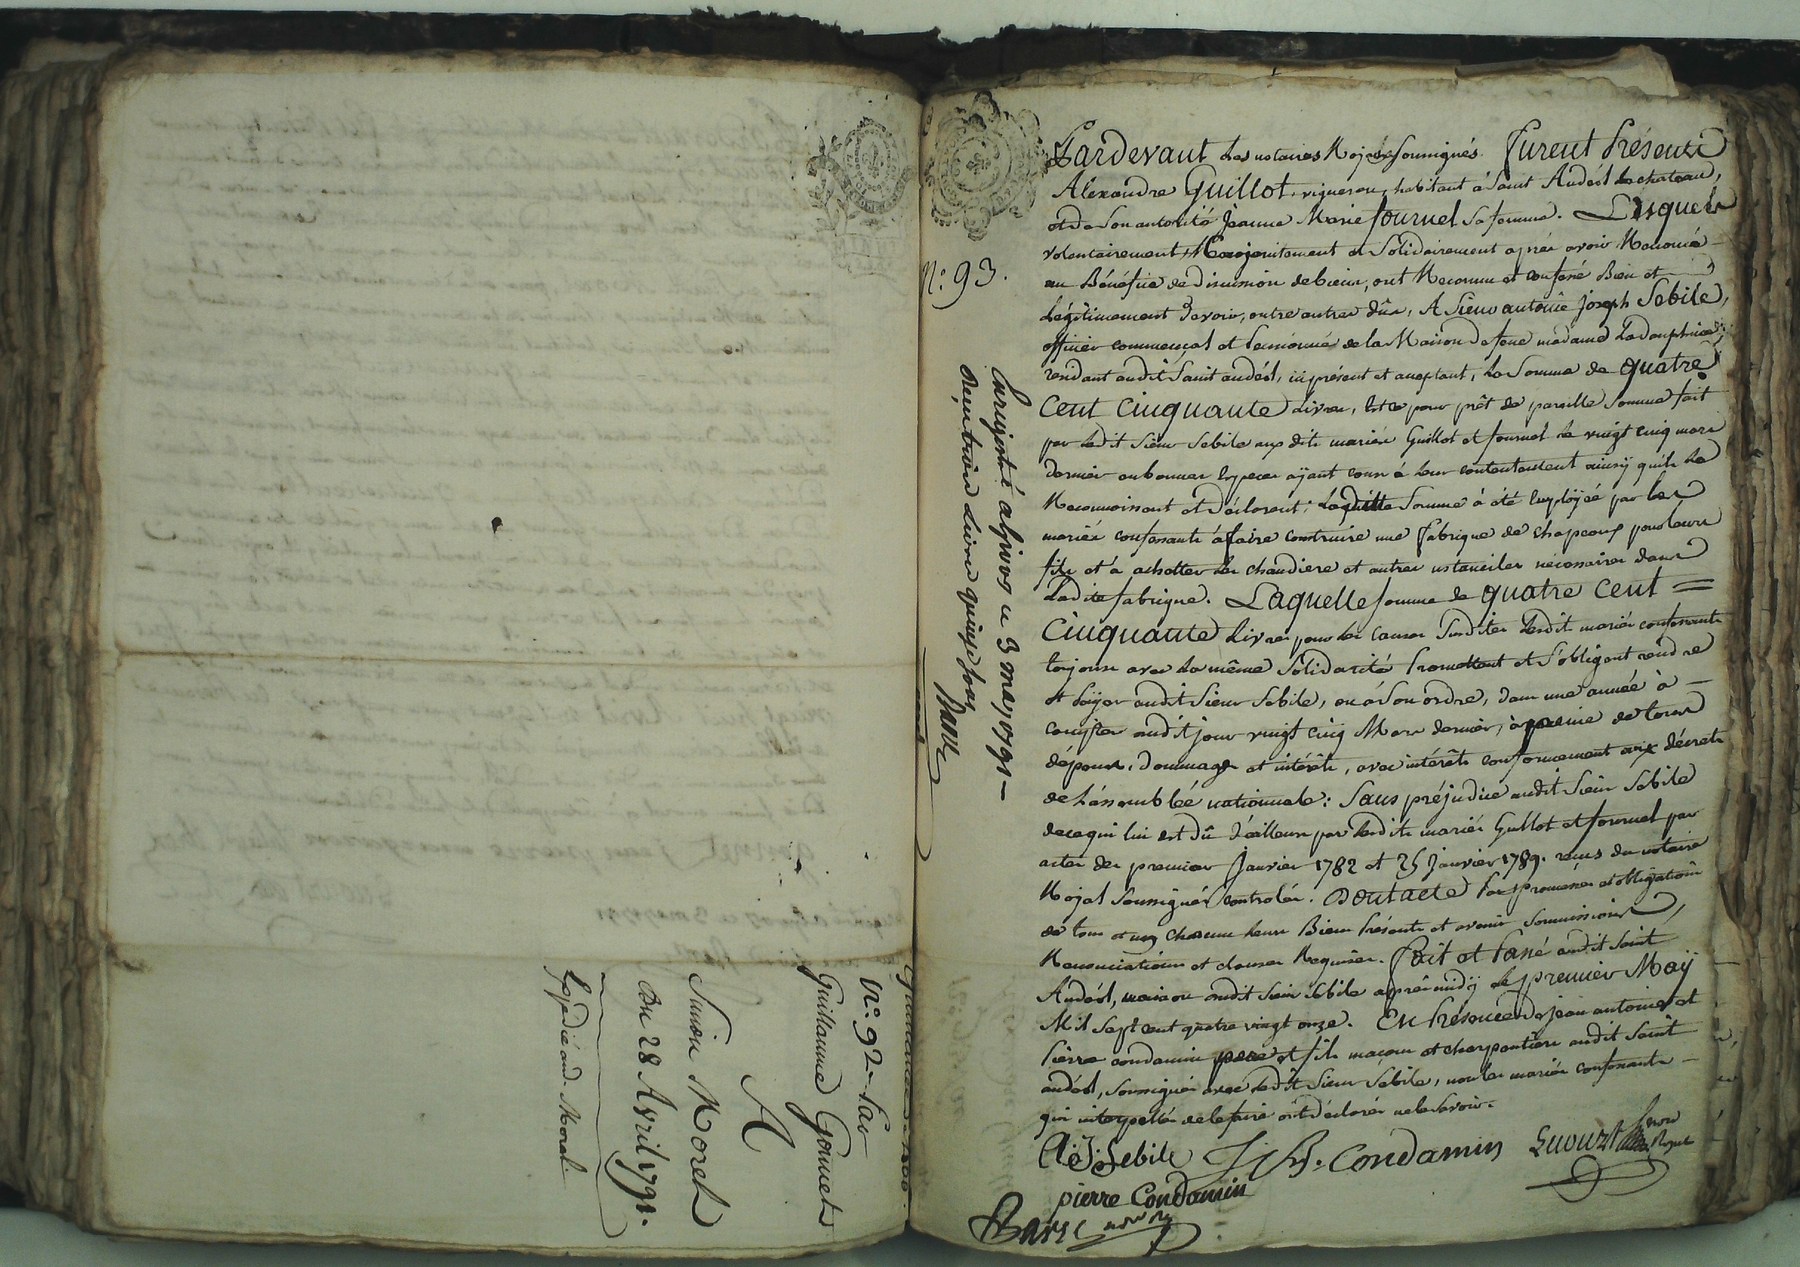 Quittance de 1200
N.º 92 - Par
Guillaume Gonnet
A
Simon Morel
Du 28 Avril 1791.
Expédié aud. Morel
N.º 93.
Enregistré a Givors ce 3 may 1791 -
Reçu trois Livres quinze sous
Pardevant Les notaires Royaux soussignés. Furent Présents
Alexandre Guillot, vigneron, habitant à Saint Andéol Le chateau,
et de son autorité Jeanne Marie fournel sa femme. Lesquels
volontairement, Conjointement et Solidairement après avoir Renoncé
au Bénéfice de discussion de biens, ont Reconnu et confessé Bien et
Légitimement Devoir, outre autres dûs, A Sieur antoine joseph Sebile,
officier commensal et Pensionné de la Maison de feue madame La dauphine,
rendant audit Saint andéol, ici présent et acceptant, La Somme de quatre
Cent Cinquante Livres, Et ce pour prêt de pareille Somme fait
par Ledit Sieur Sebile aux dits mariés Guillot et fournel Le vingt cinq mars
dernier en bonnes Especes ayant cours à Leur contentement ainsy qu'ils Le
Reconnoissent et déclarent; Laquelle Somme à été Employée par Les
mariés confessants à faire construire une fabrique de chapeaux pour Leurs
fils et à achetter Les chaudiere et autres ustanciles nécessaires dans
Ladite fabrique. Laquelle somme de quatre Cent =
Cinquante Livres pour Les Causes Susdites Lesdit mariés confessants
toujours avec La même Solidarité Promettent et S'obligent rendre
et Payer audit Sieur Sebile, ou à Son ordre, dans une année à
compter audit jour vingt cinq Mars dernier, à peine de tous
dépens, dommages et intérêts, avec intérêts conformement aux décrets
de L'assemblée nationnale: Sans préjudice audit Sieur Sebile
de ce qui lui est dû d'ailleurs par Lesdits mariés Guillot et fournel par
actes des premier Janvier 1782 et 25 Janvier 1789. reçus du notaire
Royal Soussigné, Controlés. Dont acte Par promesses et obligations
de tous et un chacuns Leurs Biens Présents et avenir Soumissions,
Renonciations et clauses Requises. Fait et Passé audit Saint
Andéol, maison audit Sieur Sebile après midy le premier May
Mil Sept cent quatre vingt onze. En Présence de jean antoine et
Pierre condamin pere et fils maçon et charpentier audit Saint
andéol, Soussignés avec Ledit Sieur Sebile, non Les mariés confessants -
qui interpellés de le faire ont déclarés ne le Savoir.
A. J. Sebile J. A. Condamin
pierre Condamin